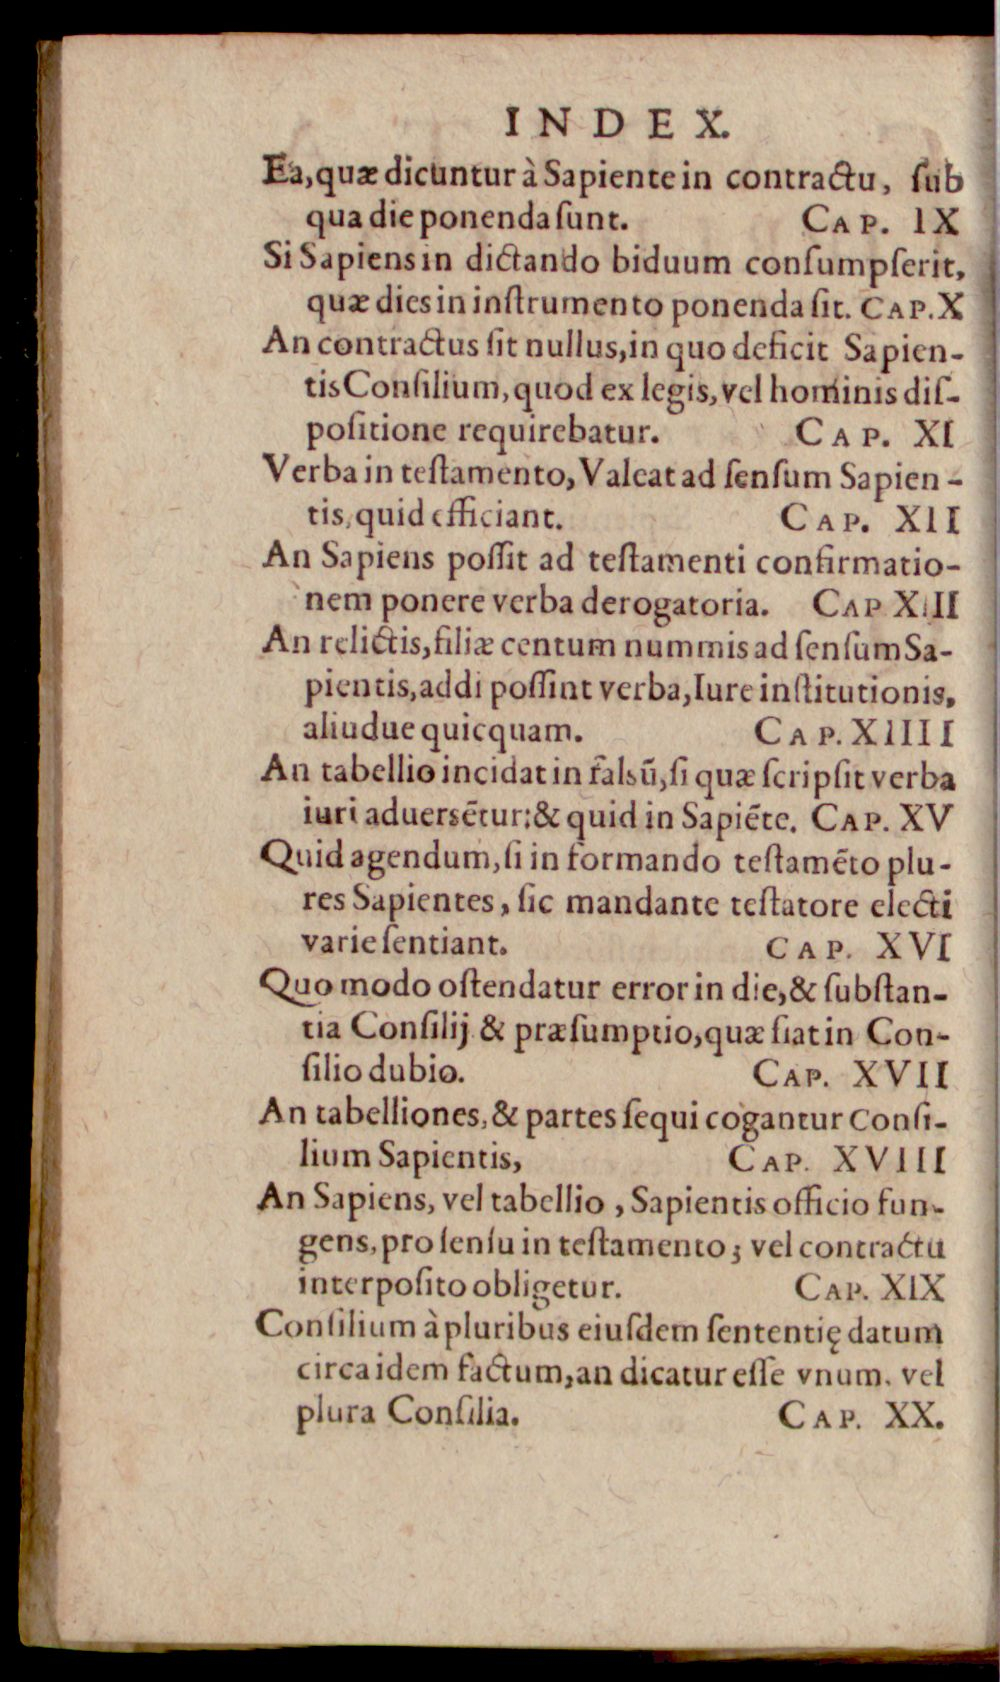 INDEX.
Ea, quæ dicuntur à Sapiente in contractu, ſub
qua die ponenda ſunt. CAP. IX
Si Sapiens in dictando biduum conſumpſerit,
quæ dies in inſtrumento ponenda ſit. CAP. X
An contractus ſit nullus, in quo deficit Sapien-
tis Conſilium, quod ex legis, vel hominis diſ-
poſitione requirebatur. CAP. XI
Verba in teſtamento, Valeat ad ſenſum Sapien-
tis, quid efficiant. CAP. XII
An Sapiens poſſit ad teſtamenti confirmatio-
nem ponere verba derogatoria. CAP XIII
An relictis, filiæ centum nummis ad ſenſum Sa-
pientis, addi poſſint verba, Iure inſtitutionis,
aliudue quicquam. CAP. XIIII
An tabellio incidat in falsũ, ſi quæ ſcripſit verba
iuri aduersẽtur: & quid in Sapiẽte. CAP. XV
Quid agendum, ſi in formando teſtamẽto plu-
res Sapientes, ſic mandante teſtatore electi
varie ſentiant. CAP. XVI
Quo modo oſtendatur error in die, & ſubſtan-
tia Conſilij & præſumptio, quæ fiat in Con-
ſilio dubio. CAP. XVII
An tabelliones, & partes ſequi cogantur Conſi-
lium Sapientis, CAP. XVIII
An Sapiens, vel tabellio, Sapientis officio fun-
gens, pro ſenſu in teſtamento; vel contractu
interpoſito obligetur. CAP. XIX
Conſilium à pluribus eiuſdem ſententię datum
circa idem factum, an dicatur eſſe vnum. vel
plura Conſilia. CAP. XX.